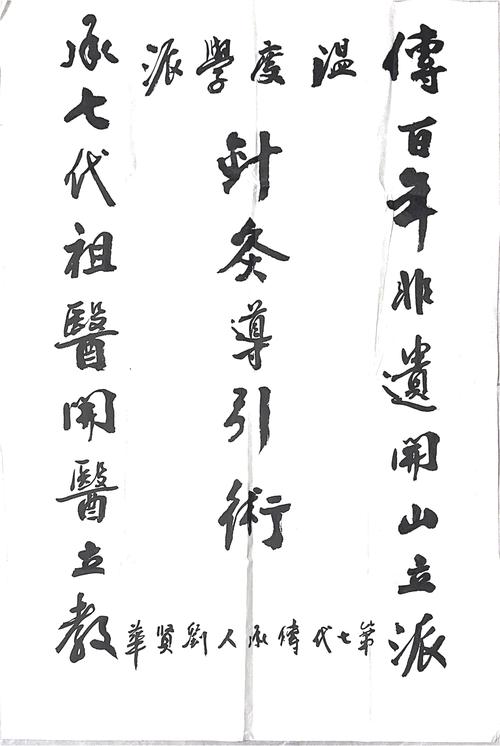 傳百年非遺開山立派
溫度學派
針灸導引術
第七代傳承人劉賢華
承七代祖醫開醫立教